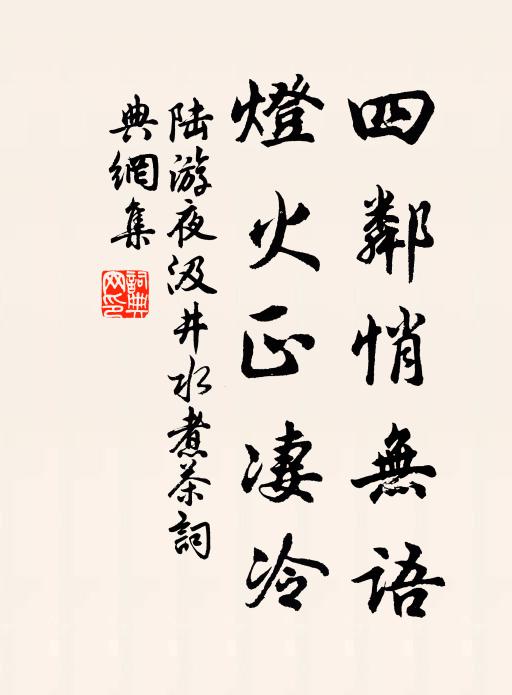 四鄰悄無語
燈火正凄冷
陆游夜汲井水煮茶詞
典網集
詞典
网印